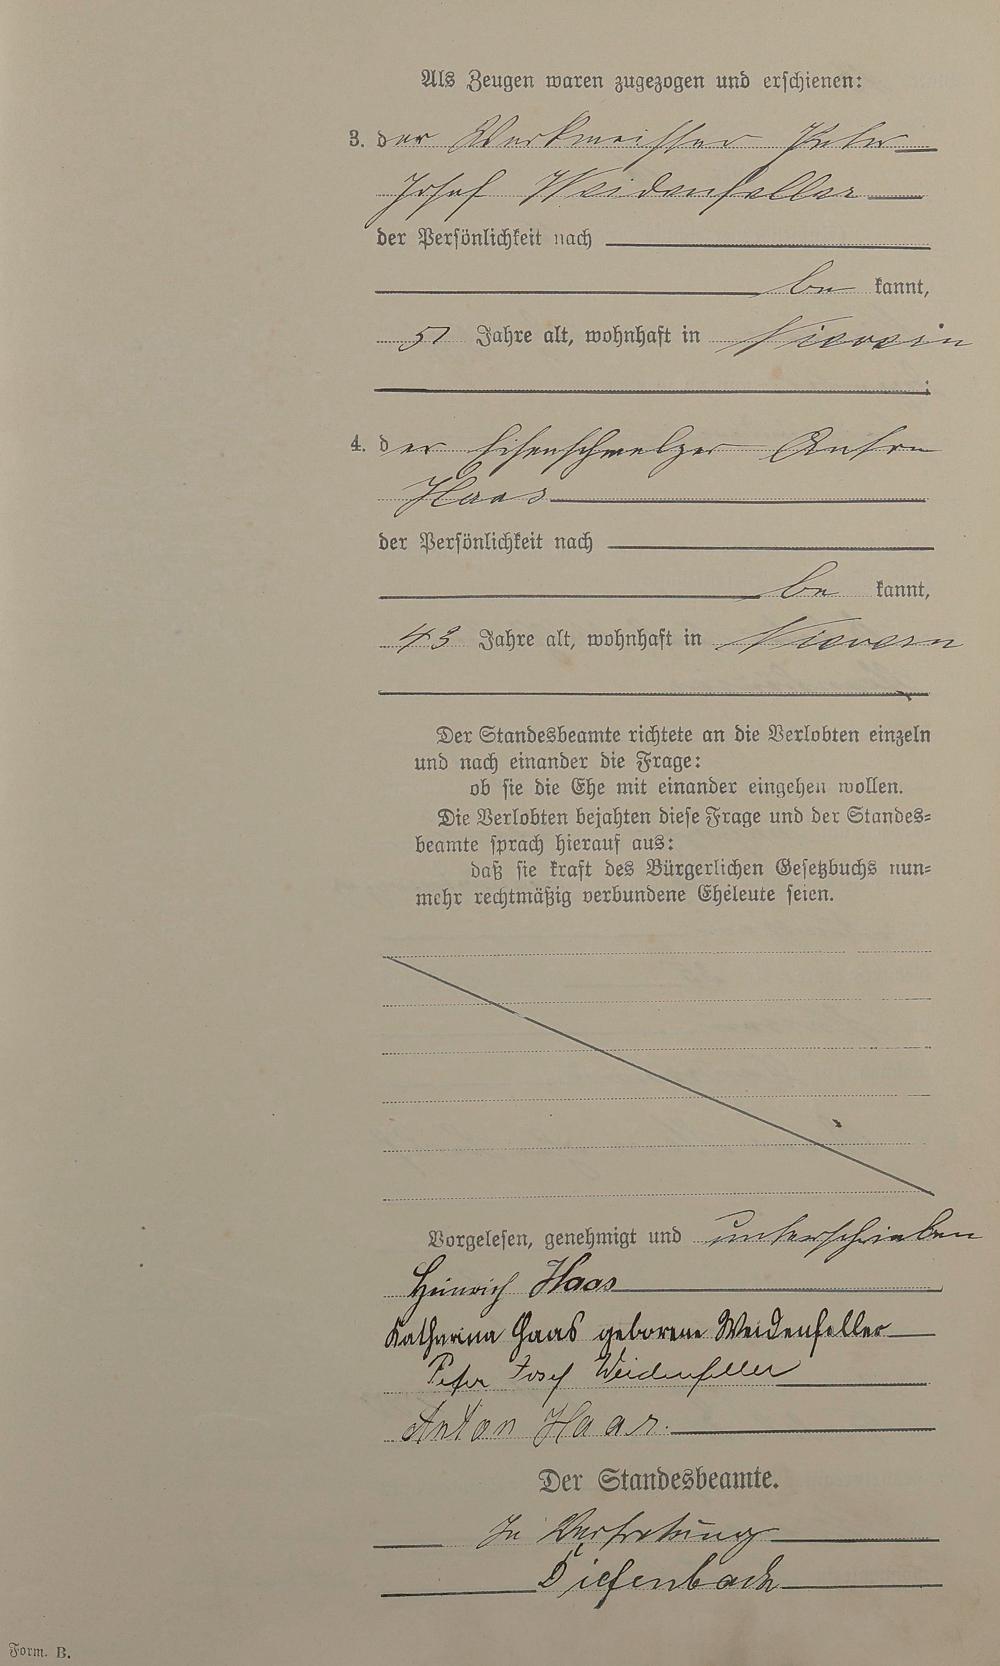 Als Zeugen waren zugezogen und erschienen:
3. der Werkmeister Peter
Josef Weidenfeller
der Persönlichkeit nach
be kannt,
51 Jahre alt, wohnhaft in Nievern
;
4. der Eisenschmelzer Anton
Haas
der Persönlichkeit nach
be kannt,
43 Jahre alt, wohnhaft in Nievern
Der Standesbeamte richtete an die Verlobten einzeln
und nach einander die Frage:
ob sie die Ehe mit einander eingehen wollen.
Die Verlobten bejahten diese Frage und der Standes=
beamte sprach hierauf aus:
daß sie kraft des Bürgerlichen Gesetzbuchs nun=
mehr rechtmäßig verbundene Eheleute seien.
Vorgelesen, genehmigt und unterschrieben
Heinrich Haas
Katharina Haas geborene Weidenfeller
Peter Josef Weidenfeller
Anton Haas.
Der Standesbeamte.
In Vertretung
Diefenbach
Form. B.